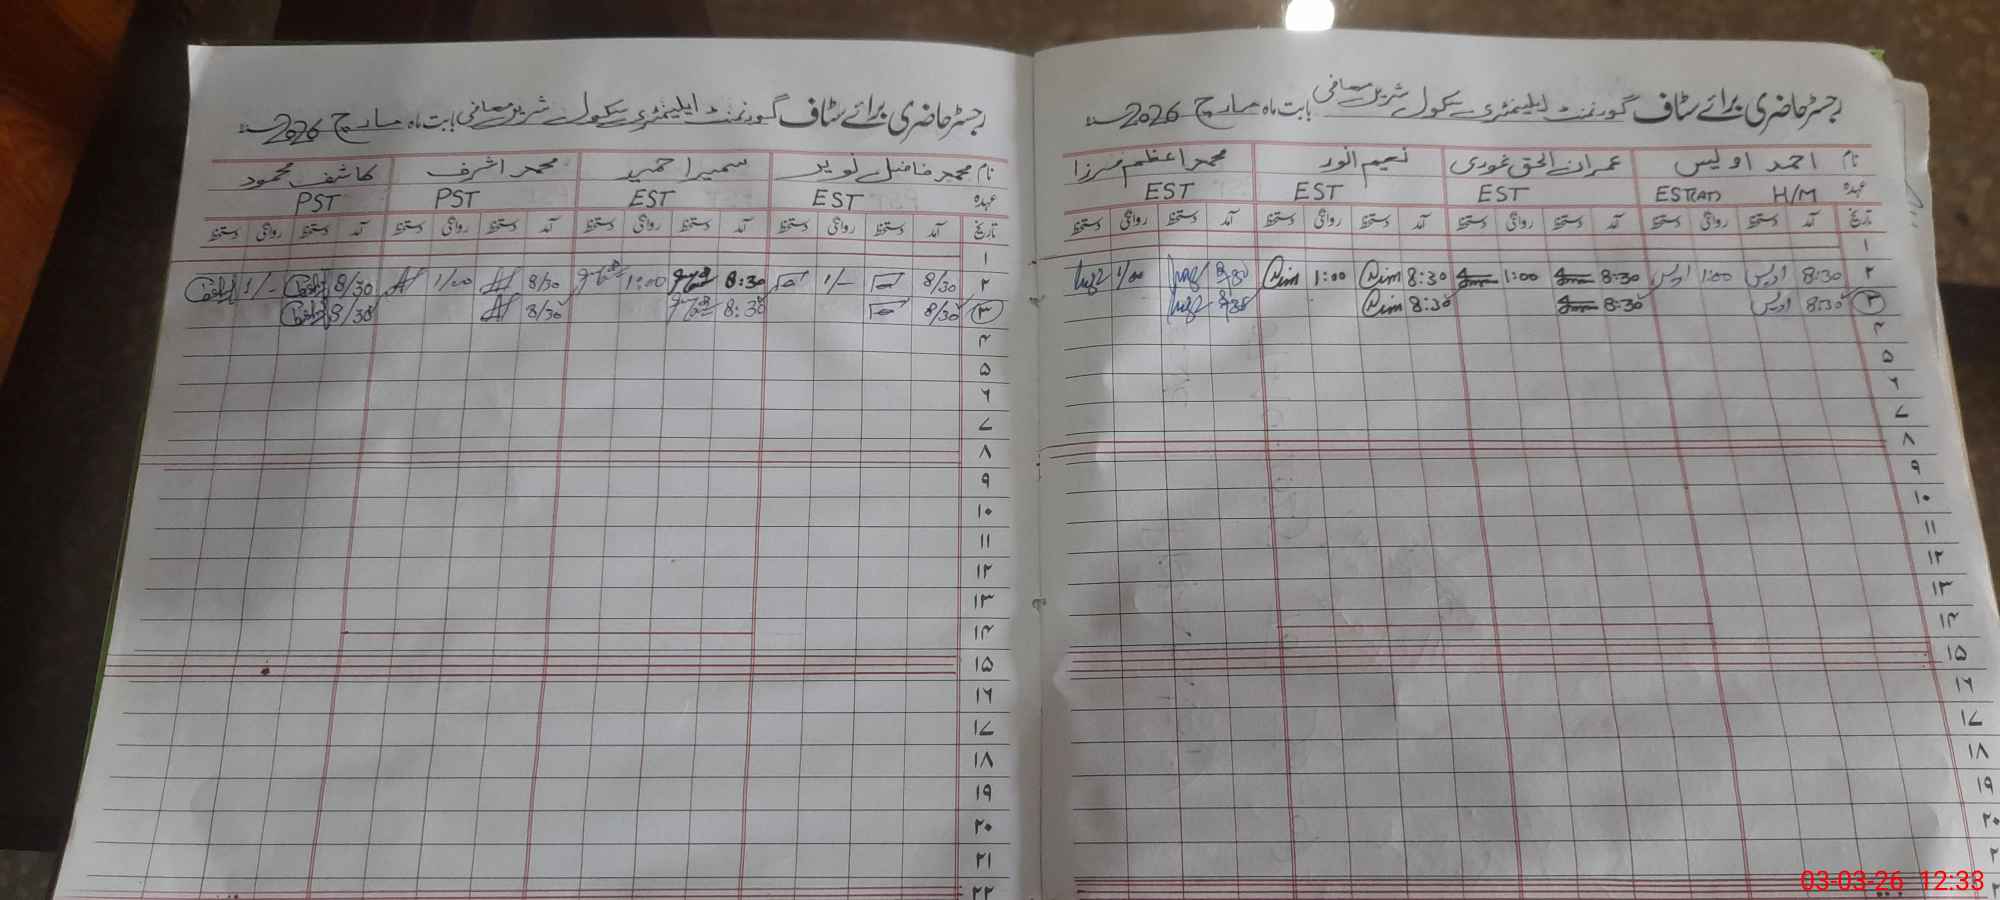 رجسٹر حاضری برائے سٹاف گورنمنٹ ایلیمنٹری سکول شریں معافی بابت ماہ مارچ 2026
نام احمد اویس عمران الحق غوری نعیم انور محمد اعظم مرزا
عہدہ H/M EST EST EST
تاریخ آمد دستخط روانگی دستخط آمد دستخط روانگی دستخط آمد دستخط روانگی دستخط آمد دستخط روانگی دستخط
۱
۲ 8:30 اویس 1:00 اویس 8:30 1:00 8:30 1:00 8/30 1/00
۳ 8:30 اویس 8:30 8:30 8/30
۴
۵
۶
۷
۸
۹
۱۰
۱۱
۱۲
۱۳
۱۴
۱۵
۱۶
۱۷
۱۸
۱۹
۲۰
رجسٹر حاضری برائے سٹاف گورنمنٹ ایلیمنٹری سکول شریں معافی بابت ماہ مارچ 2026
نام محمد فاضل نوید سمیرا حمید محمد اشرف کاشف محمود
عہدہ EST EST PST PST
تاریخ آمد دستخط روانگی دستخط آمد دستخط روانگی دستخط آمد دستخط روانگی دستخط آمد دستخط روانگی دستخط
۱
۲ 8/30 1/- 8:30 1:00 8/30 1/00 8/30 1/-
۳ 8/30 8:30 8/30 8/30
۴
۵
۶
۷
۸
۹
۱۰
۱۱
۱۲
۱۳
۱۴
۱۵
۱۶
۱۷
۱۸
۱۹
۲۰
۲۱
۲۲
03-03-26 12:33